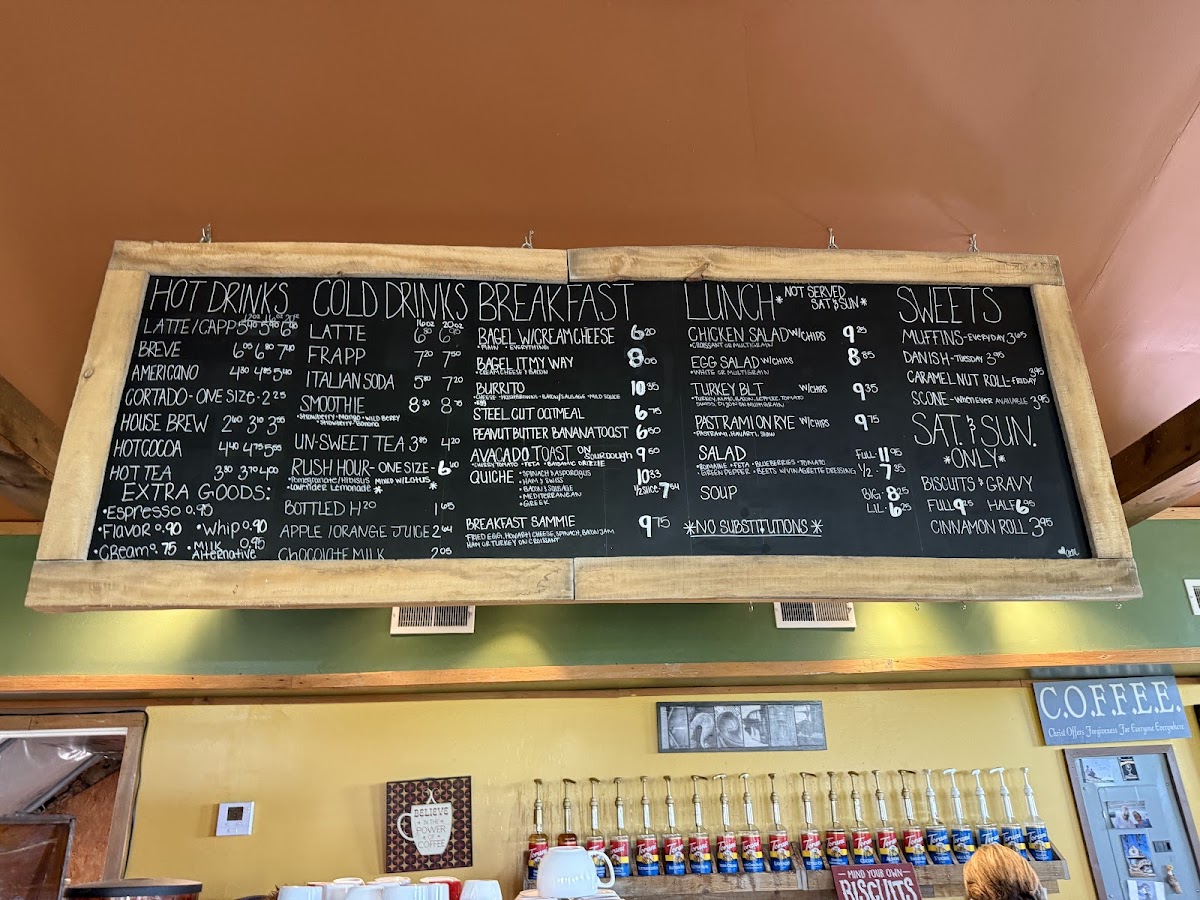 HOT DRINKS
12oz 16oz 20oz
LATTE/CAPP
BREVE 6.05 6.80 7.40
AMERICANO 4.30 4.85 5.40
CORTADO - ONE SIZE - 2.25
HOUSE BREW 2.60 3.10 3.55
HOT COCOA 4.40 4.75 5.55
HOT TEA 3.30 3.70 4.00
EXTRA GOODS:
•Espresso 0.95
•Flavor 0.90 •Whip 0.90
•Cream 0.75 •Milk 0.95
Alternative
COLD DRINKS
16oz 20oz
LATTE
FRAPP 7.20 7.50
ITALIAN SODA 5.80 7.20
SMOOTHIE 8.30 8.75
•Strawberry •Mango •Wild Berry
•Strawberry Banana
UN-SWEET TEA 3.85 4.20
RUSH HOUR - ONE SIZE - 6.40
•Pomegranate/Hibiscus MIXED W/LOTUS
•Lavender Lemonade
BOTTLED H2O 1.65
APPLE/ORANGE JUICE 2.64
CHOCOLATE MILK 2.05
BREAKFAST
BAGEL W/CREAM CHEESE 6.20
•PLAIN •EVERYTHING
BAGEL IT MY WAY 8.05
•CREAM CHEESE & BACON
BURRITO 10.35
•CHEESE •HASHBROWNS •BACON/SAUSAGE •MILD SAUCE
•EGG
STEEL CUT OATMEAL 6.75
PEANUT BUTTER BANANA TOAST 6.50
AVACADO TOAST ON SOURDOUGH 9.50
•CHERRY TOMATO •FETA •BALSAMIC DRIZZLE
QUICHE 10.33
•SPINACH & ASPARAGUS
•HAM & SWISS 1/2 SLICE - 7.54
•BACON & SAUSAGE
•MEDITERRANEAN
•GREEK
BREAKFAST SAMMIE 9.75
•FRIED EGG, HOWARTI CHEESE, SPINACH, BACON JAM
HAM OR TURKEY ON CROISSANT
LUNCH *NOT SERVED
SAT & SUN*
CHICKEN SALAD W/CHIPS 9.25
•CROISSANT OR MULTIGRAIN
EGG SALAD W/CHIPS 8.85
•WHITE OR MULTIGRAIN
TURKEY BLT W/CHIPS 9.35
•TURKEY, MAYO, BACON, LETTUCE, TOMATO
SWISS, DIJON ON MULTIGRAIN
PASTRAMI ON RYE W/CHIPS 9.75
•PASTRAMI, HAVARTI, SLAW
SALAD FULL - 11.95
•ROMAINE •FETA •BLUEBERRIES •TOMATO
•GREEN PEPPER •BEETS W/VINAGRETTE DRESSING 1/2 - 7.35
SOUP BIG - 8.25
LIL - 6.25
*NO SUBSTITUTIONS*
SWEETS
MUFFINS - EVERYDAY 3.65
DANISH - TUESDAY 3.95
CARAMEL NUT ROLL - FRIDAY 3.95
SCONE - WHENEVER AVAILABLE 3.95
SAT. & SUN.
*ONLY*
BISCUITS & GRAVY
FULL 9.25 HALF 6.95
CINNAMON ROLL 3.95
C.O.F.F.E.E.
Christ Offers Forgiveness For Everyone Everywhere
BELIEVE
IN THE
POWER
OF
COFFEE
Torani
MIND YOUR OWN
BISCUITS